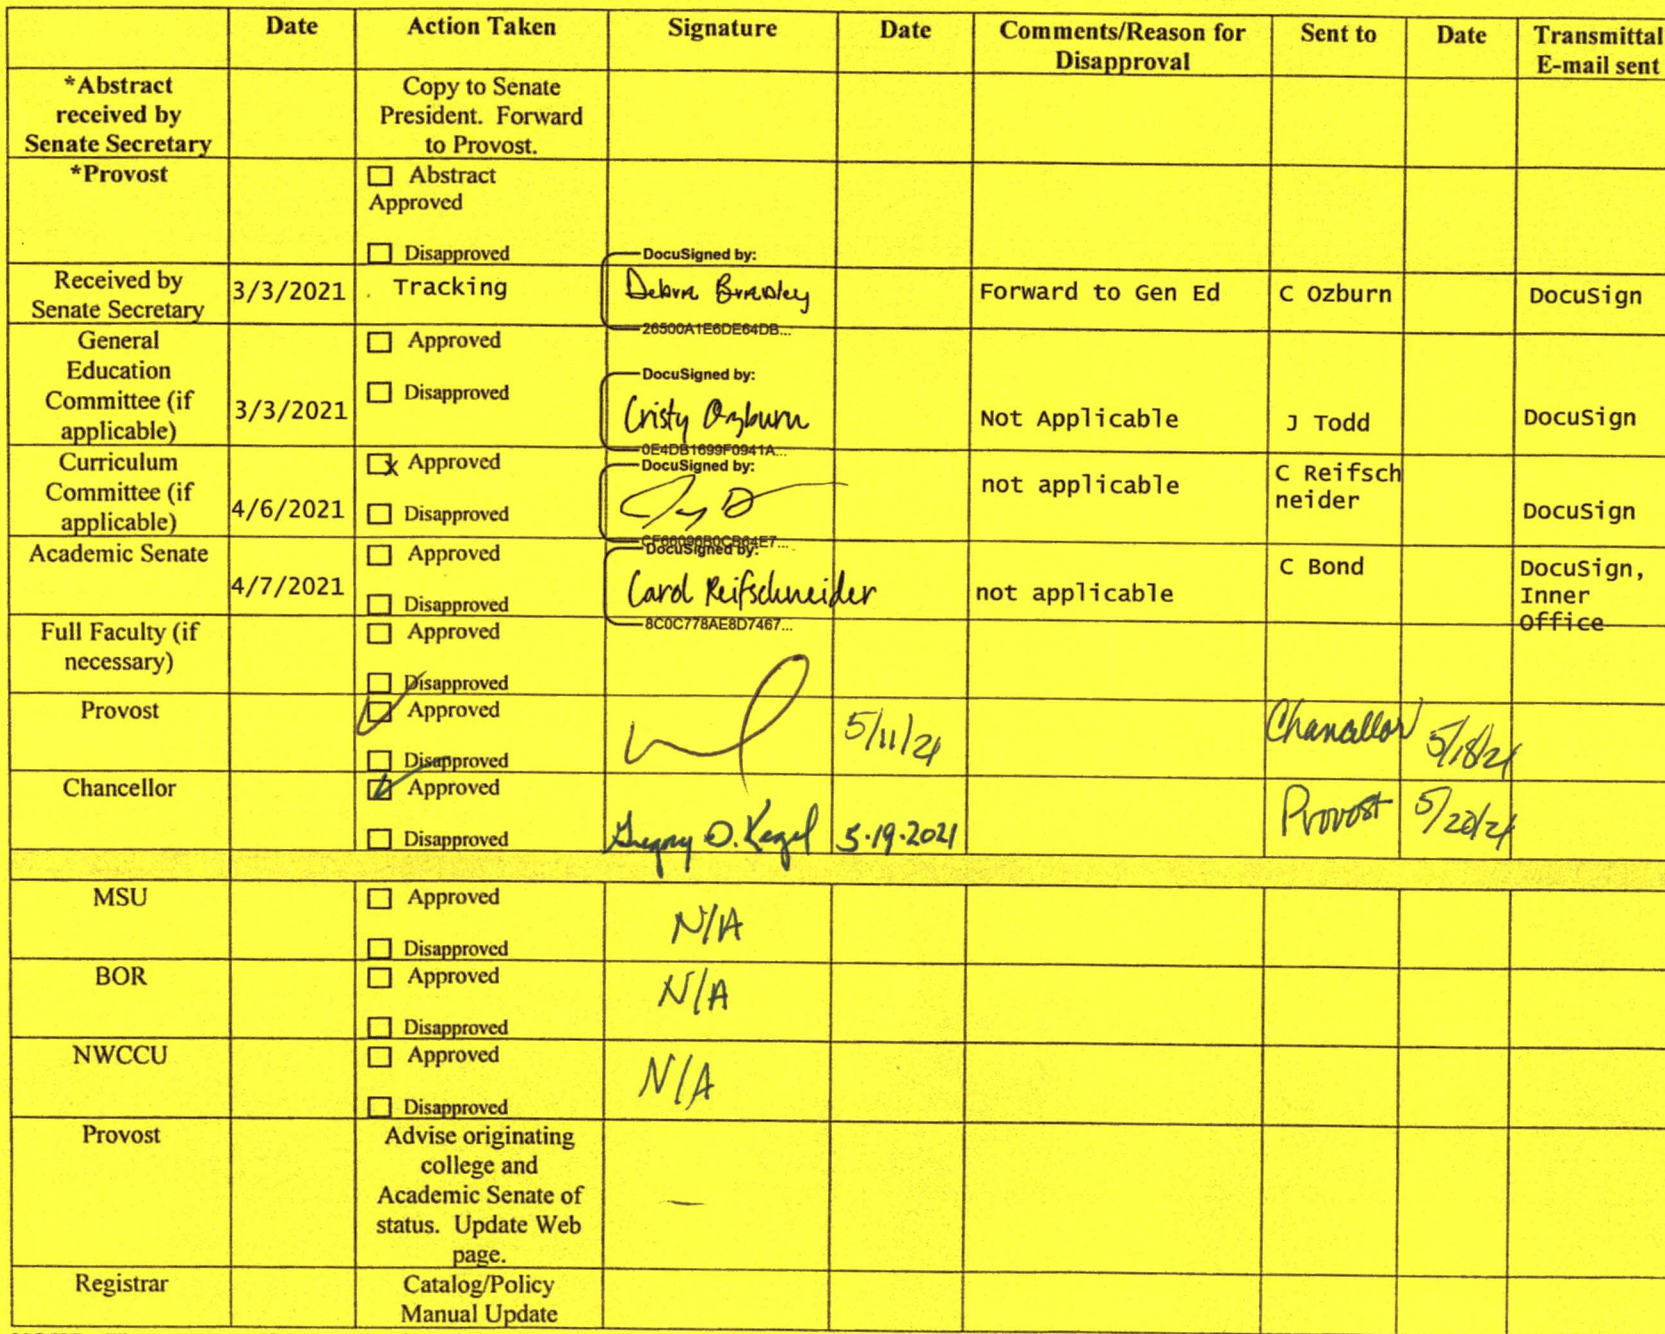 Date Action Taken Signature Date Comments/Reason for Sent to Date Transmittal
Disapproval E-mail sent
*Abstract
received by
Senate Secretary
Copy to Senate
President. Forward
to Provost.
*Provost
☐ Abstract
Approved
☐ Disapproved
Received by
Senate Secretary
3/3/2021
Tracking
DocuSigned by:
Debra Bradley
26500A1E6DE64DB...
Forward to Gen Ed
C Ozburn
DocuSign
General
Education
Committee (if
applicable)
3/3/2021
☐ Approved
☐ Disapproved
DocuSigned by:
Cristy Ozburn
0E4DB1699F0941A...
Not Applicable
J Todd
DocuSign
Curriculum
Committee (if
applicable)
4/6/2021
☐ x Approved
☐ Disapproved
DocuSigned by:
CF66096B0CB64E7...
not applicable
C Reifsch
neider
DocuSign
Academic Senate
4/7/2021
☐ Approved
☐ Disapproved
DocuSigned by:
Carol Reifschneider
8C0C778AE8D7467...
not applicable
C Bond
DocuSign,
Inner
Office
Full Faculty (if
necessary)
☐ Approved
☐ Disapproved
Provost
☑ Approved
☐ Disapproved
5/11/21
Chancellor
5/18/21
Chancellor
☑ Approved
☐ Disapproved
Gregory D. Kegel
5-19-2021
Provost
5/20/21
MSU
☐ Approved
☐ Disapproved
N/A
BOR
☐ Approved
☐ Disapproved
N/A
NWCCU
☐ Approved
☐ Disapproved
N/A
Provost
Advise originating
college and
Academic Senate of
status. Update Web
page.
—
Registrar
Catalog/Policy
Manual Update